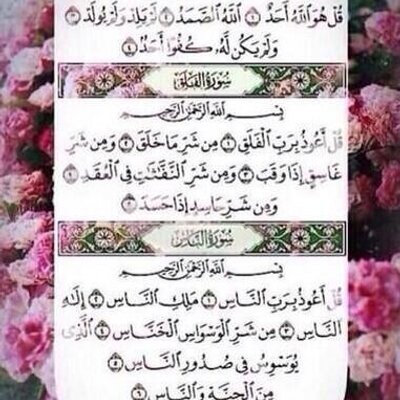 قُلْ هُوَ ٱللَّهُ أَحَدٌ ١ ٱللَّهُ ٱلصَّمَدُ ٢ لَمْ يَلِدْ وَلَمْ يُولَدْ ٣
وَلَمْ يَكُن لَّهُۥ كُفُوًا أَحَدٌۢ ٤
سُورَةُ الفَلَقِ
بِسْمِ ٱللَّهِ ٱلرَّحْمَٰنِ ٱلرَّحِيمِ
قُلْ أَعُوذُ بِرَبِّ ٱلْفَلَقِ ١ مِن شَرِّ مَا خَلَقَ ٢ وَمِن شَرِّ
غَاسِقٍ إِذَا وَقَبَ ٣ وَمِن شَرِّ ٱلنَّفَّٰثَٰتِ فِى ٱلْعُقَدِ ٤
وَمِن شَرِّ حَاسِدٍ إِذَا حَسَدَ ٥
سُورَةُ النَّاسِ
بِسْمِ ٱللَّهِ ٱلرَّحْمَٰنِ ٱلرَّحِيمِ
قُلْ أَعُوذُ بِرَبِّ ٱلنَّاسِ ١ مَلِكِ ٱلنَّاسِ ٢ إِلَٰهِ
ٱلنَّاسِ ٣ مِن شَرِّ ٱلْوَسْوَاسِ ٱلْخَنَّاسِ ٤ ٱلَّذِى
يُوَسْوِسُ فِى صُدُورِ ٱلنَّاسِ ٥
مِنَ ٱلْجِنَّةِ وَٱلنَّاسِ ٦